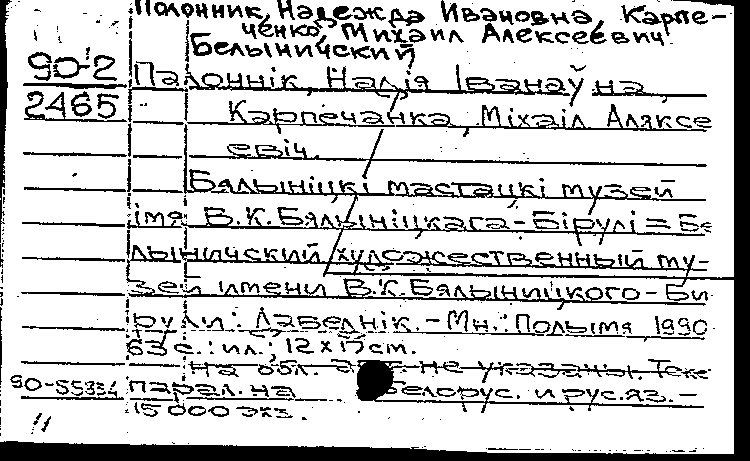 Полонник, Надежда Ивановна, Карпе-
ченко, Михаил Алексеевич
Белыничский
90-2
2465
Палоннік, Надзія Іванаўна,
Карпечанка, Міхаіл Аляксе
евіч.
Бялыніцкі мастацкі музей
імя В.К.Бялыніцкага-Бірулі = Бе
лыничский художественный му-
зей имени В.К.Бялыницкого-Би
рули: Даведнік. - Мн.: Полымя, 1990
63 с.: ил.; 12 x 17 см.
На обл. авт. не указаны. Текс
90-55334 парал. на белорус. и рус.яз. -
15 000 экз.